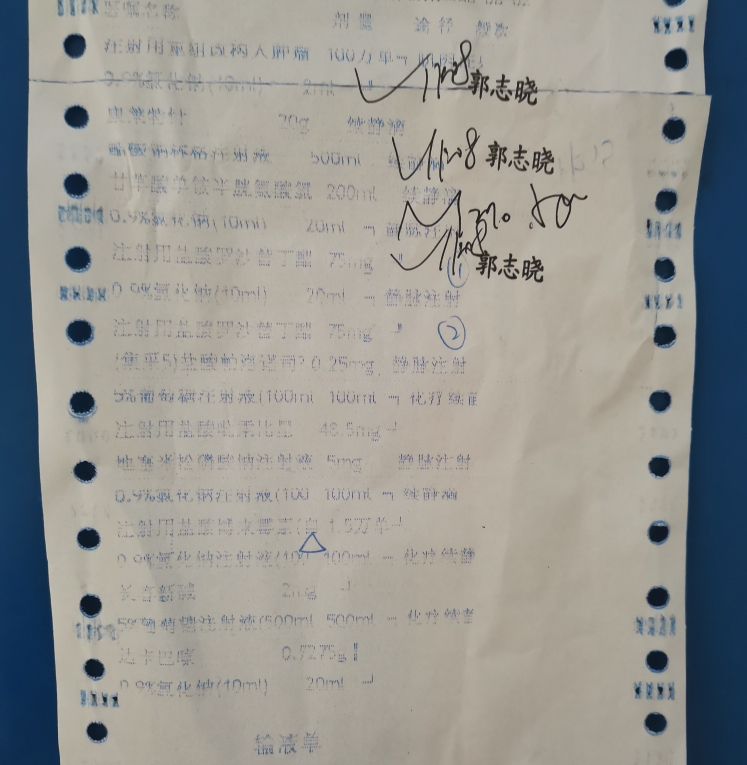 医嘱名称 剂量 途径 频次
注射用重组改构人肿瘤 100万单┐ 肌肉注射
0.9%氯化钠(10ml) 2ml ┘
郭志晓
20g 续静滴
注射液 500ml 续静滴
郭志晓
甘草酸单铵半胱氨酸氯 200ml 续静滴
0.9%氯化钠(10ml) 20ml ┐ 静脉注射
注射用盐酸罗沙替丁醋 75mg ┘
① 郭志晓
0.9%氯化钠(10ml) 20ml ┐ 静脉注射
注射用盐酸罗沙替丁醋 75mg ┘
②
(集采5)盐酸帕洛诺司? 0.25mg 静脉注射
5%葡萄糖注射液(100ml 100ml ┐ 化疗续静
注射用盐酸吡柔比星 48.5mg ┘
地塞米松磷酸钠注射液 5mg 静脉注射
0.9%氯化钠注射液(100 100ml ┐ 续静滴
注射用盐酸博来霉素(自 1.5万单┘
0.9%氯化钠注射液(100 100ml ┐ 化疗续静
长春新碱 2mg ┘
5%葡萄糖注射液(500ml 500ml ┐ 化疗续静
达卡巴嗪 0.7275g
0.9%氯化钠(10ml) 20ml ┘
输液单